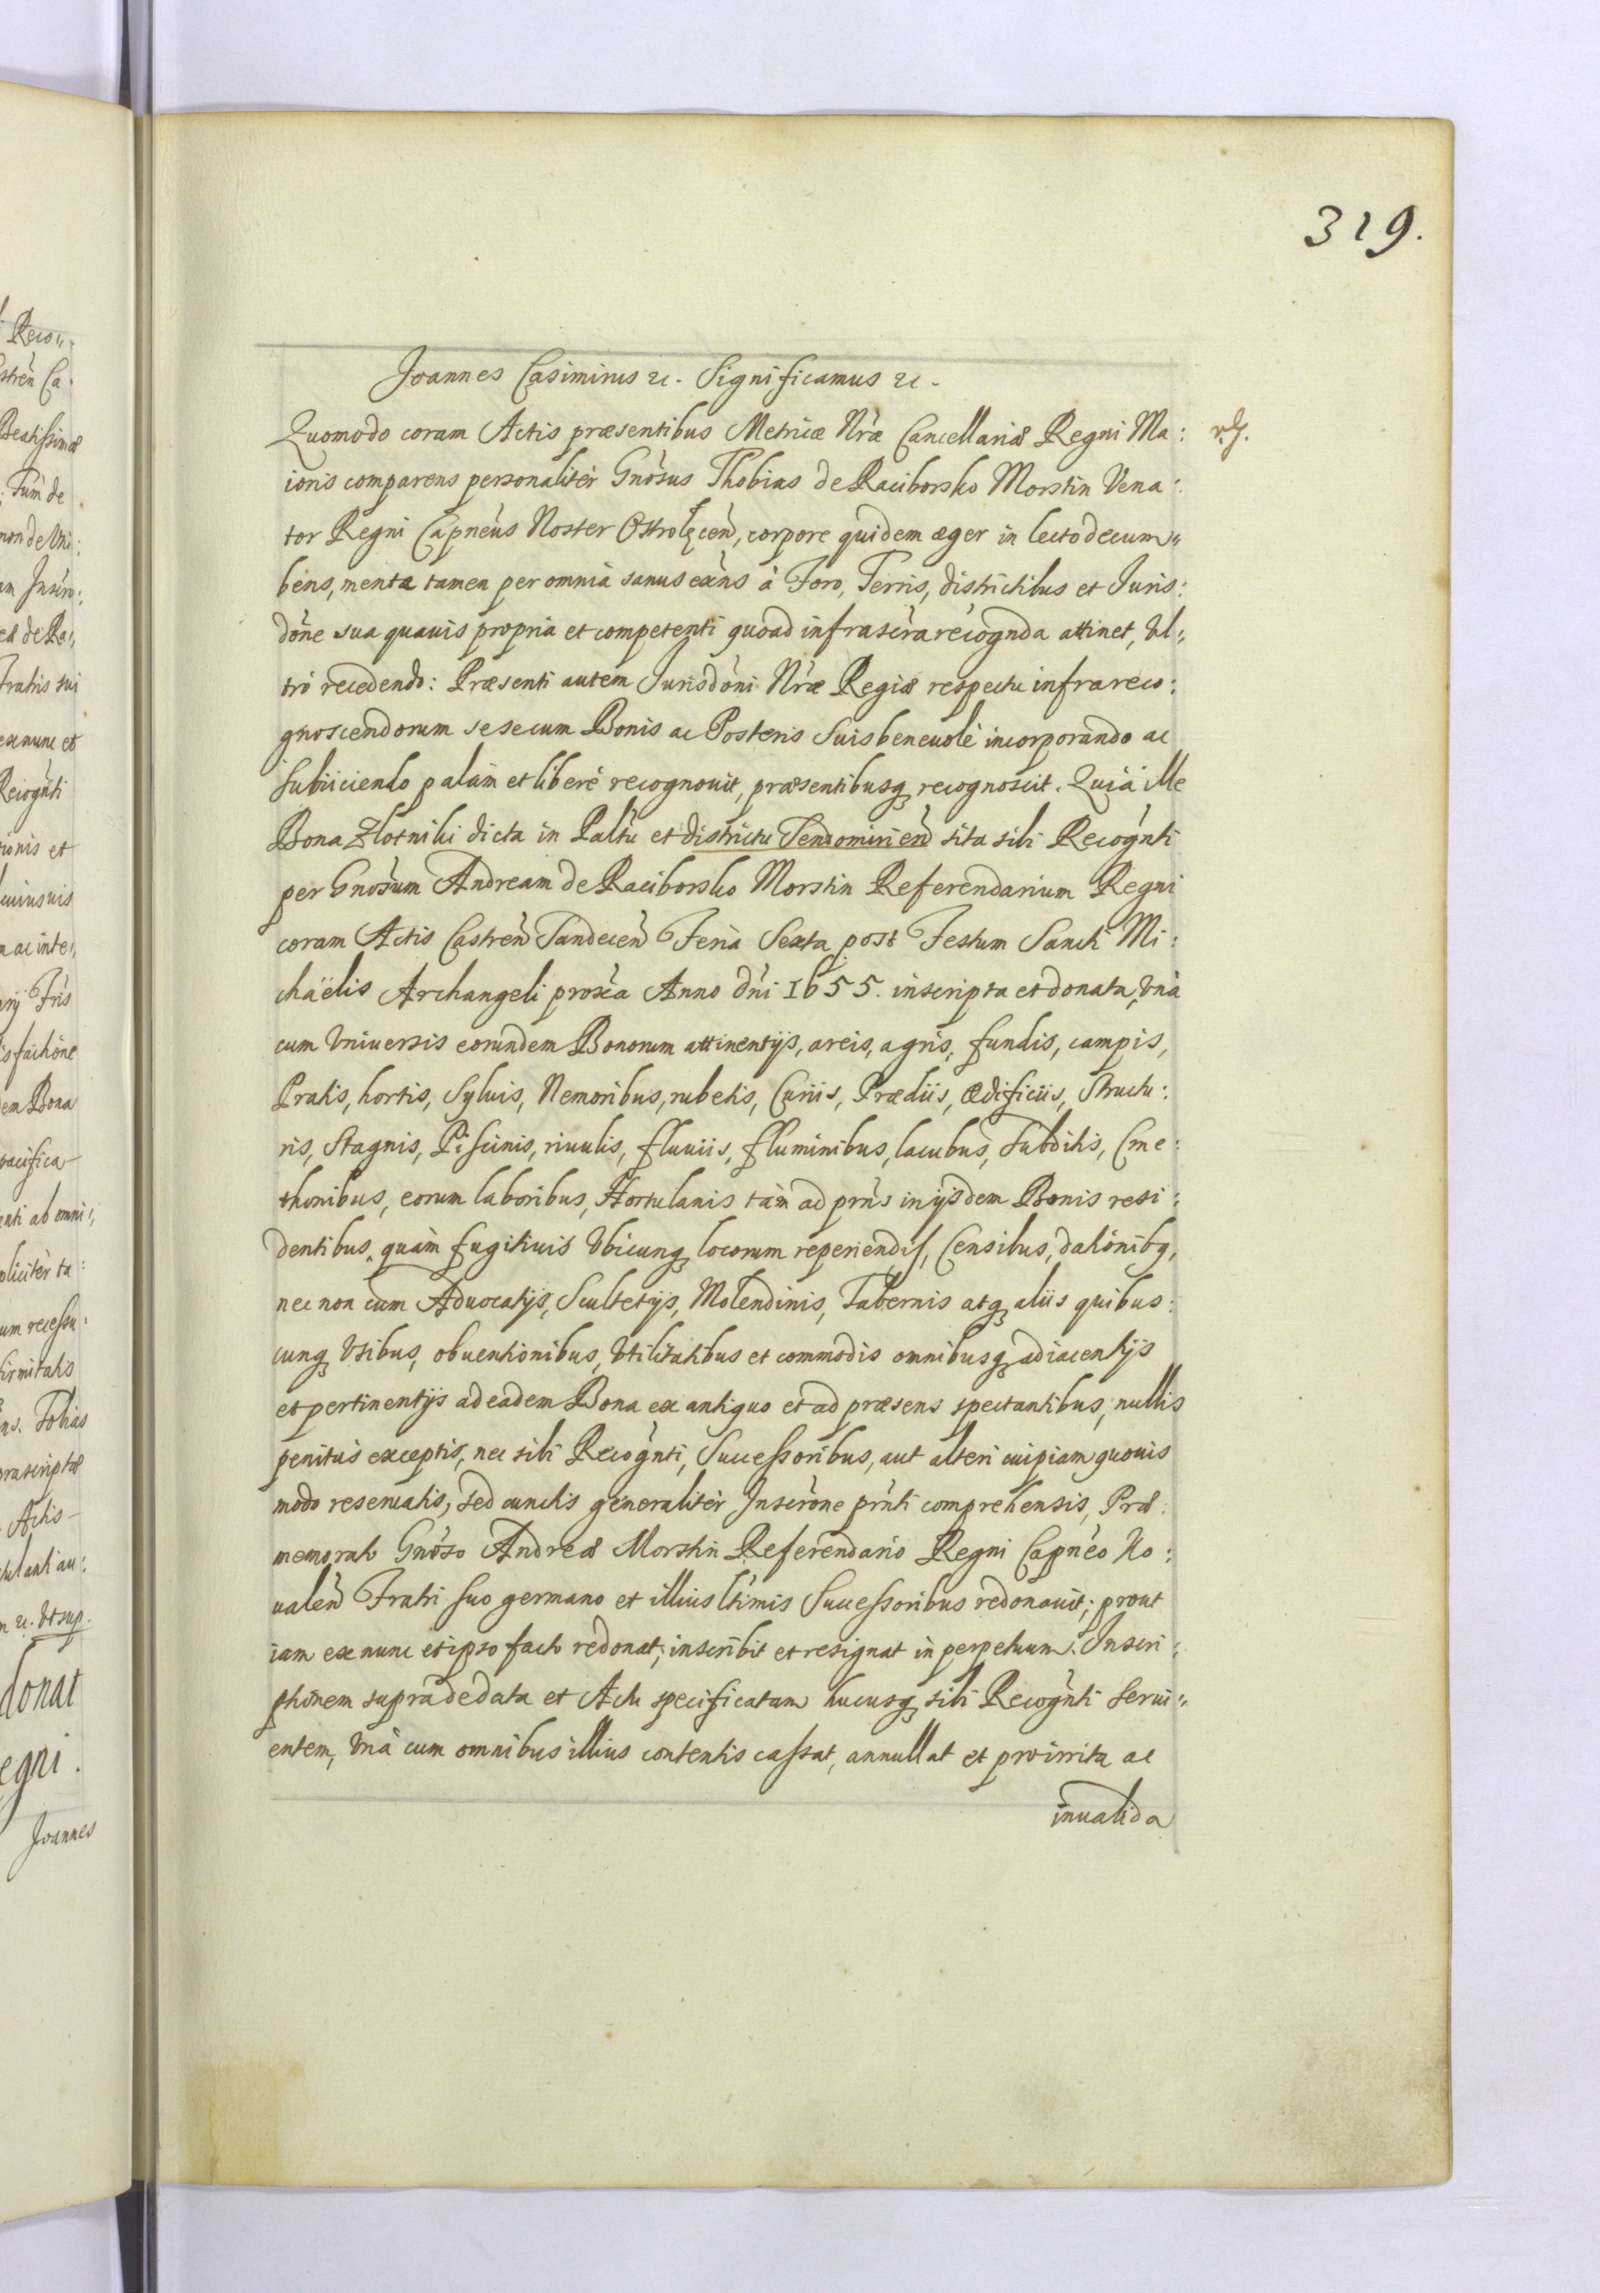 319.
Joannes Casimirus etc. Significamus etc.
Quomodo coram Actis præsentibus Metricæ Nr̃æ Cancellariæ Regni Ma:
ioris comparens personalitèr Gnõsus Thobias de Raciborsko Morstin Vena:
tor Regni Capneũs Noster Ostrołęceñ, corpore quidem æger in lecto decum„
bens, mente tamen per omnia sanus exñs à Foro, Terris, districtibus et Juris:
dõne sua quauis propria et competenti quoad infrascr̃a recognda attinet, Vl„
trò recedendo: Præsenti autem Jurisdõni Nr̃æ Regiæ respectu infrareco:
gnoscendorum sese cum Bonis ac Posteris Suis beneuolè incorporando ac
Subiiciendo palàm et liberè recognouit, præsentibusq recognoscit. Quia ille
Bona Zlotniki dicta in Paltũ et districtu Sendomirieñ sita sibi Recogñti
per Gnõsum Andream de Raciborsko Morstin Referendarium Regni
coram Actis Castreñ Sandeceñ Feria Sexta post Festum Sancti Mi:
chaëlis Archangeli proxa Anno dñi 1655. inscripta et donata, Vnà
cum Vniuersis eorundem Bonorum attinentijs, areis, agris, fundis, campis,
Pratis, hortis, Syluis, Nemoribus, rubetis, Curiis, Prædiis, ædificiis, Structu:
ris, Stagnis, Piscinis, riuulis, fluuiis, fluminibus, lacubus, Subditis, Cme:
thonibus, eorum laboribus, Hortulanis tàm ad prñs in ijsdem Bonis resi:
dentibus, quàm fugitiuis Vbicunq locorum reperiendis, Censibus, datiõnibq,
nec non cum Aduocatijs, Scultetijs, Molendinis, Tabernis atq aliis quibus:
cunq Vsibus, obuentionibus, Vtilitatibus et commodis omnibusq adiacentijs
et pertinentijs ad eadem Bona ex antiquo et ad præsens spectantibus, nullis
penitùs exceptis, nec sibi Recogñti, Successoribus, aut alteri cuipiam quouis
modo reseruatis, sed cunctis generalitèr Inscrõne prñti comprehensis, Præ:
memorato Gnõso Andreæ Morstin Referendario Regni Capnẽo Ko:
ualeñ Fratri suo germano et illius ltimis Successoribus redonauit; prout
iam ex nunc et ipso facto redonat, inscribit et resignat in perpetuum. Inscri:
ptiõnem supra de data et Actu specificatam hucusq sibi Recogñti serui„
entem, Vnà cum omnibus illius contentis cassat, annullat et pro irrita ac
inualida